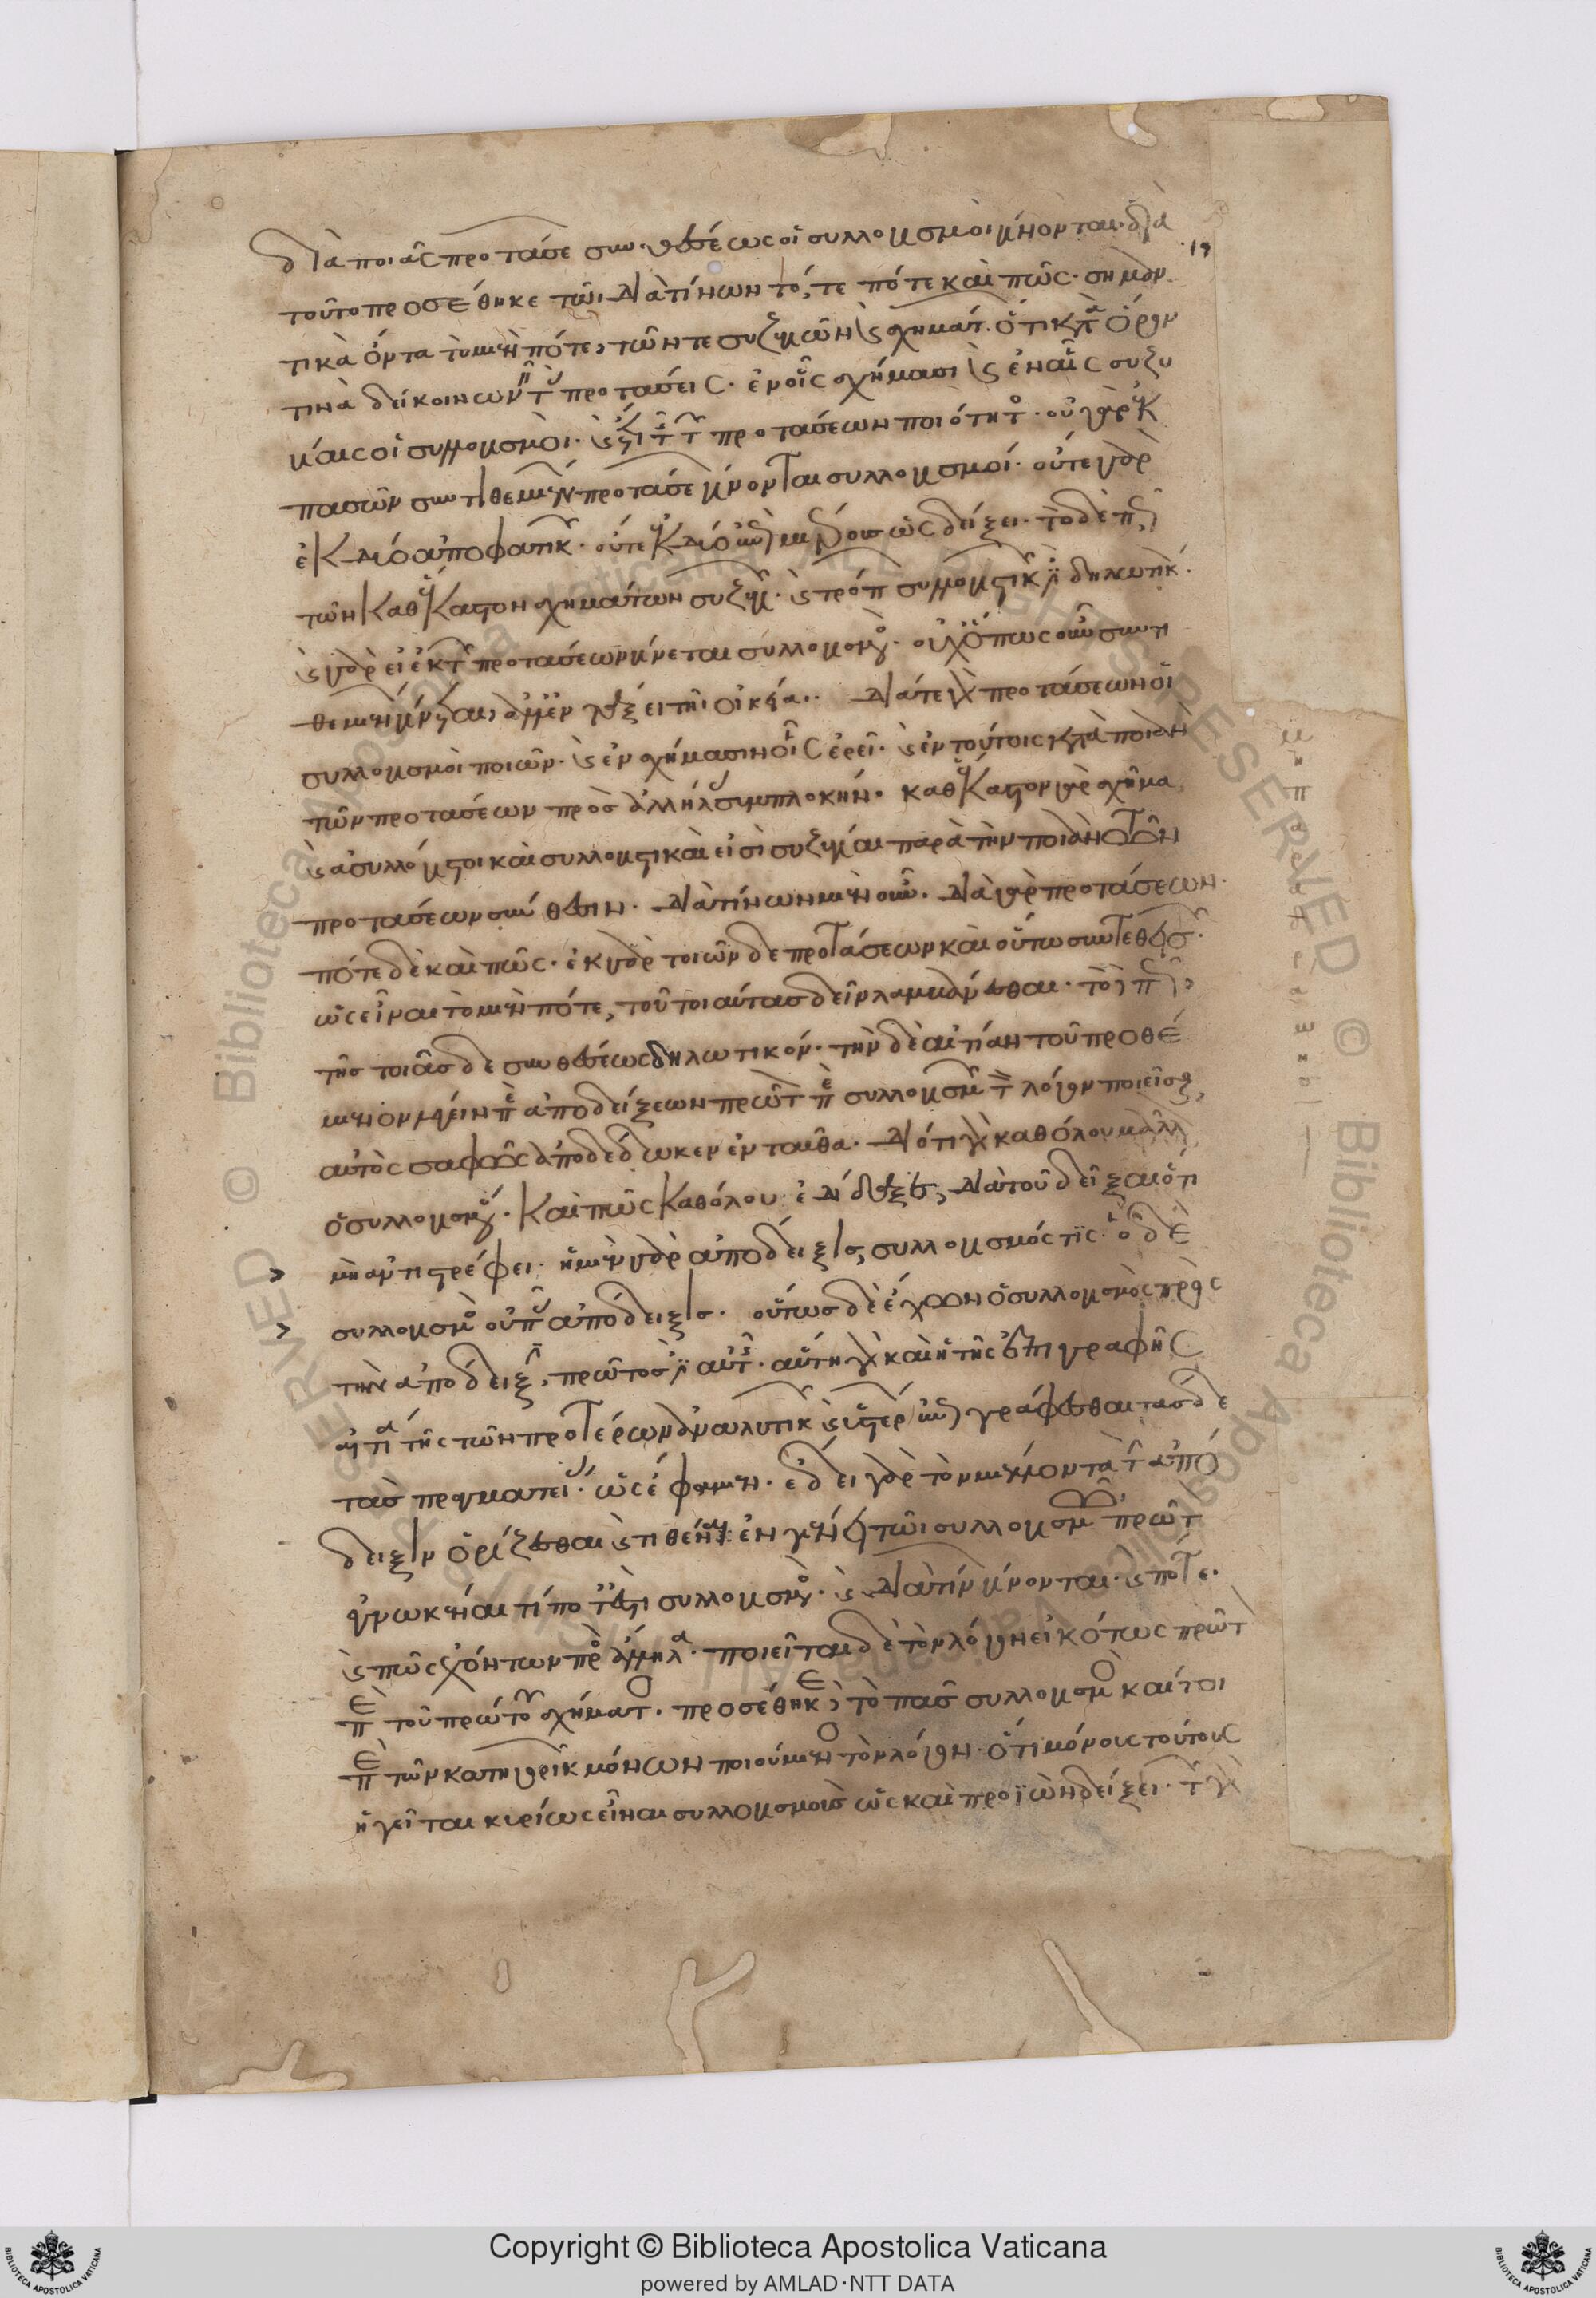 διὰ ποίας προτάσεων συνθέσεως οἱ συλλογισμοὶ γίνονται· διὰ
τοῦτο προσέθηκε τῶι διὰ τίνων τό, τε πότε καὶ πῶς· σημαν
τικὰ ὄντα τὸ μὲν πότε, τῶν τε συζυγιῶν καὶ σχημάτ· ὅτι κατὰ ὅρον
τινὰ δεῖ κοινων προτάσεις· ἐν οἷς σχήμασι καὶ ἐν αἷς συζυ
γίαις οἱ συλλογισμοὶ· καὶ ἔτι προτάσεων ποιότητ· οὐ γὰρ ἐκ
πασῶν συντιθεμένων προτάσε γίνονται συλλογισμοί· οὔτε γὰρ
ἐκ δύο ἀποφατικ· οὔτε ἐκ δύο ἐπὶ μέρους ὡς δείξει· τὸ δὲ πῶς
τῶν καθ' ἕκαστον σχημάτων συζυγ· καὶ τρόπ συλλογιστικ ἐστι δηλωτικ·
καὶ γὰρ εἰ ἐκ τῶν προτάσεων γίνεται συλλογισμός· οὐχ ὅπως οὖν συντι
θεμένων γίνεται, ἀλλ' ἐν τάξει τῆι οἰκεία·· διά τε γὰρ προτάσεων οἱ
συλλογισμοὶ ποιῶν· καὶ ἐν σχήμασιν οἷς ἐρεῖ· καὶ ἐν τούτοις κατὰ ποιὰν
τῶν προτάσεων πρὸς ἀλλήλ συμπλοκήν· καθ' ἕκαστον γὰρ σχῆμα
καὶ ἀσυλλόγιστοι καὶ συλλογιστικαὶ εἰσὶ συζυγίαι παρὰ τὴν ποιὰν τῶν
προτάσεων σύνθεσιν· διὰ τίνων μὲν οὖν· διὰ γὰρ προτάσεων·
πότε δὲ καὶ πῶς· ἐκ γὰρ τοιῶνδε προτάσεων καὶ οὕτω συντεθεισ·
ὡς εἶναι τὸ μὲν πότε, τοῦ τοιαύτας δεῖν λαμβάνεσθαι· τὸ δὲ πῶς
τῆς τοιᾶσδε συνθέσεως δηλωτικόν· τὴν δὲ αἰτίαν τοῦ προθέ
μενον λέγειν περὶ ἀποδείξεων πρῶτ περὶ συλλογισμ τ λόγον ποιεῖσθ
αὐτὸς σαφῶς ἀποδέδωκεν ἐνταῦθα· διότι γὰρ καθόλου μᾶλλ
ὁ συλλογισμός· καὶ πῶς καθόλου ἐδίδαξε, διὰ τοῦ δεῖξαι ὅτι
μὴ ἀντιστρέφει· ἡ μὲν γὰρ ἀπόδειξις, συλλογισμός τις· ὁ δὲ
συλλογισμὸς οὐ πᾶς ἀπόδειξις· οὕτως δὲ ἔχων ὁ συλλογισμὸς πρὸς
τὴν ἀπόδειξ, πρῶτος ἐστι αὐτῆς· αὕτη γὰρ καὶ ἡ τῆς ἐπιγραφῆς
αἰτία τῆς τῶν προτέρων ἀναλυτικ καὶ ὑστέρ ἐπιγράφεσθαι τάσδε
τὰς πραγματεί· ὡς ἔφαμεν· ἔδει γὰρ τὸν μέλλοντα τὴν ἀπό
δειξιν ὁρίζεσθαι καὶ τιθέναι ἐν γένει τῶι συλλογισμ πρῶτ
ἐγνωκέναι τί ποτέ ἐστι συλλογισμός· καὶ διὰ τίν γίνονται· καὶ πότε·
καὶ πῶς ἐχόντων πρὸς ἄλληλα· ποιεῖται δὲ τὸν λόγον εἰκότως πρῶτ
περὶ τοῦ πρώτου σχήματ· προσέθηκε, τὸ πᾶς συλλογισμὸς καίτοι
περὶ τῶν κατηγορικ μόνων ποιούμενος τὸν λόγον· ὅτι μόνους τούτους
ἡγεῖται κυρίως εἶναι συλλογισμοὺς ὡς καὶ προϊὼν δείξει· τ γὰρ
Copyright © Biblioteca Apostolica Vaticana
powered by AMLAD·NTT DATA